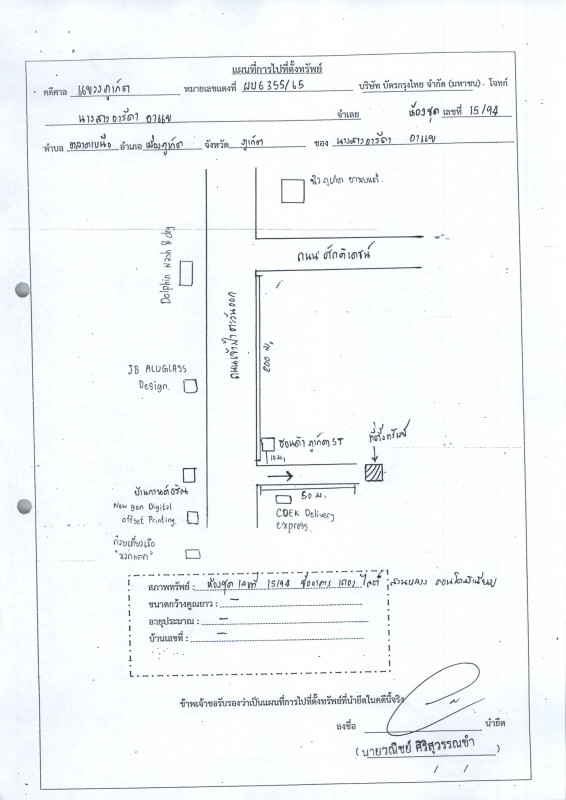 แผนที่การไปที่ตั้งทรัพย์
คดีศาล แขวงภูเก็ต หมายเลขแดงที่ ผบ6355/65 บริษัท บัตรกรุงไทย จำกัด (มหาชน) โจทก์
นางสาวอารีดา จำเลย ห้องชุด เลขที่ 15/94
ตำบล ตลาดเหนือ อำเภอ เมืองภูเก็ต จังหวัด ภูเก็ต ของ นางสาวอารีดา
Dolphin wash & dry
ถนน ศักดิเดชน์
ถนนเจ้าฟ้าตะวันออก
200 ม.
JB ALUGLASS
Design.
ฮอนด้า ภูเก็ต ST
ที่ตั้งทรัพย์
10 ม.
50 ม.
New gen Digital
offset Printing.
CDEK Delivery
express.
ก๋วยเตี๋ยวเรือ
สภาพทรัพย์ : ห้องชุด เลขที่ 15/94 ชื่ออาคาร เดอะ ไลต์ สวนหลวง คอนโดมิเนียม
ขนาดกว้างคูณยาว : -
อายุประมาณ : -
บ้านเลขที่ : -
ข้าพเจ้าขอรับรองว่าเป็นแผนที่การไปที่ตั้งทรัพย์ที่นำยึดในคดีนี้จริง
ลงชื่อ นำยึด
(นายวณิชย์ ศิริสุวรรณขำ)
/ /